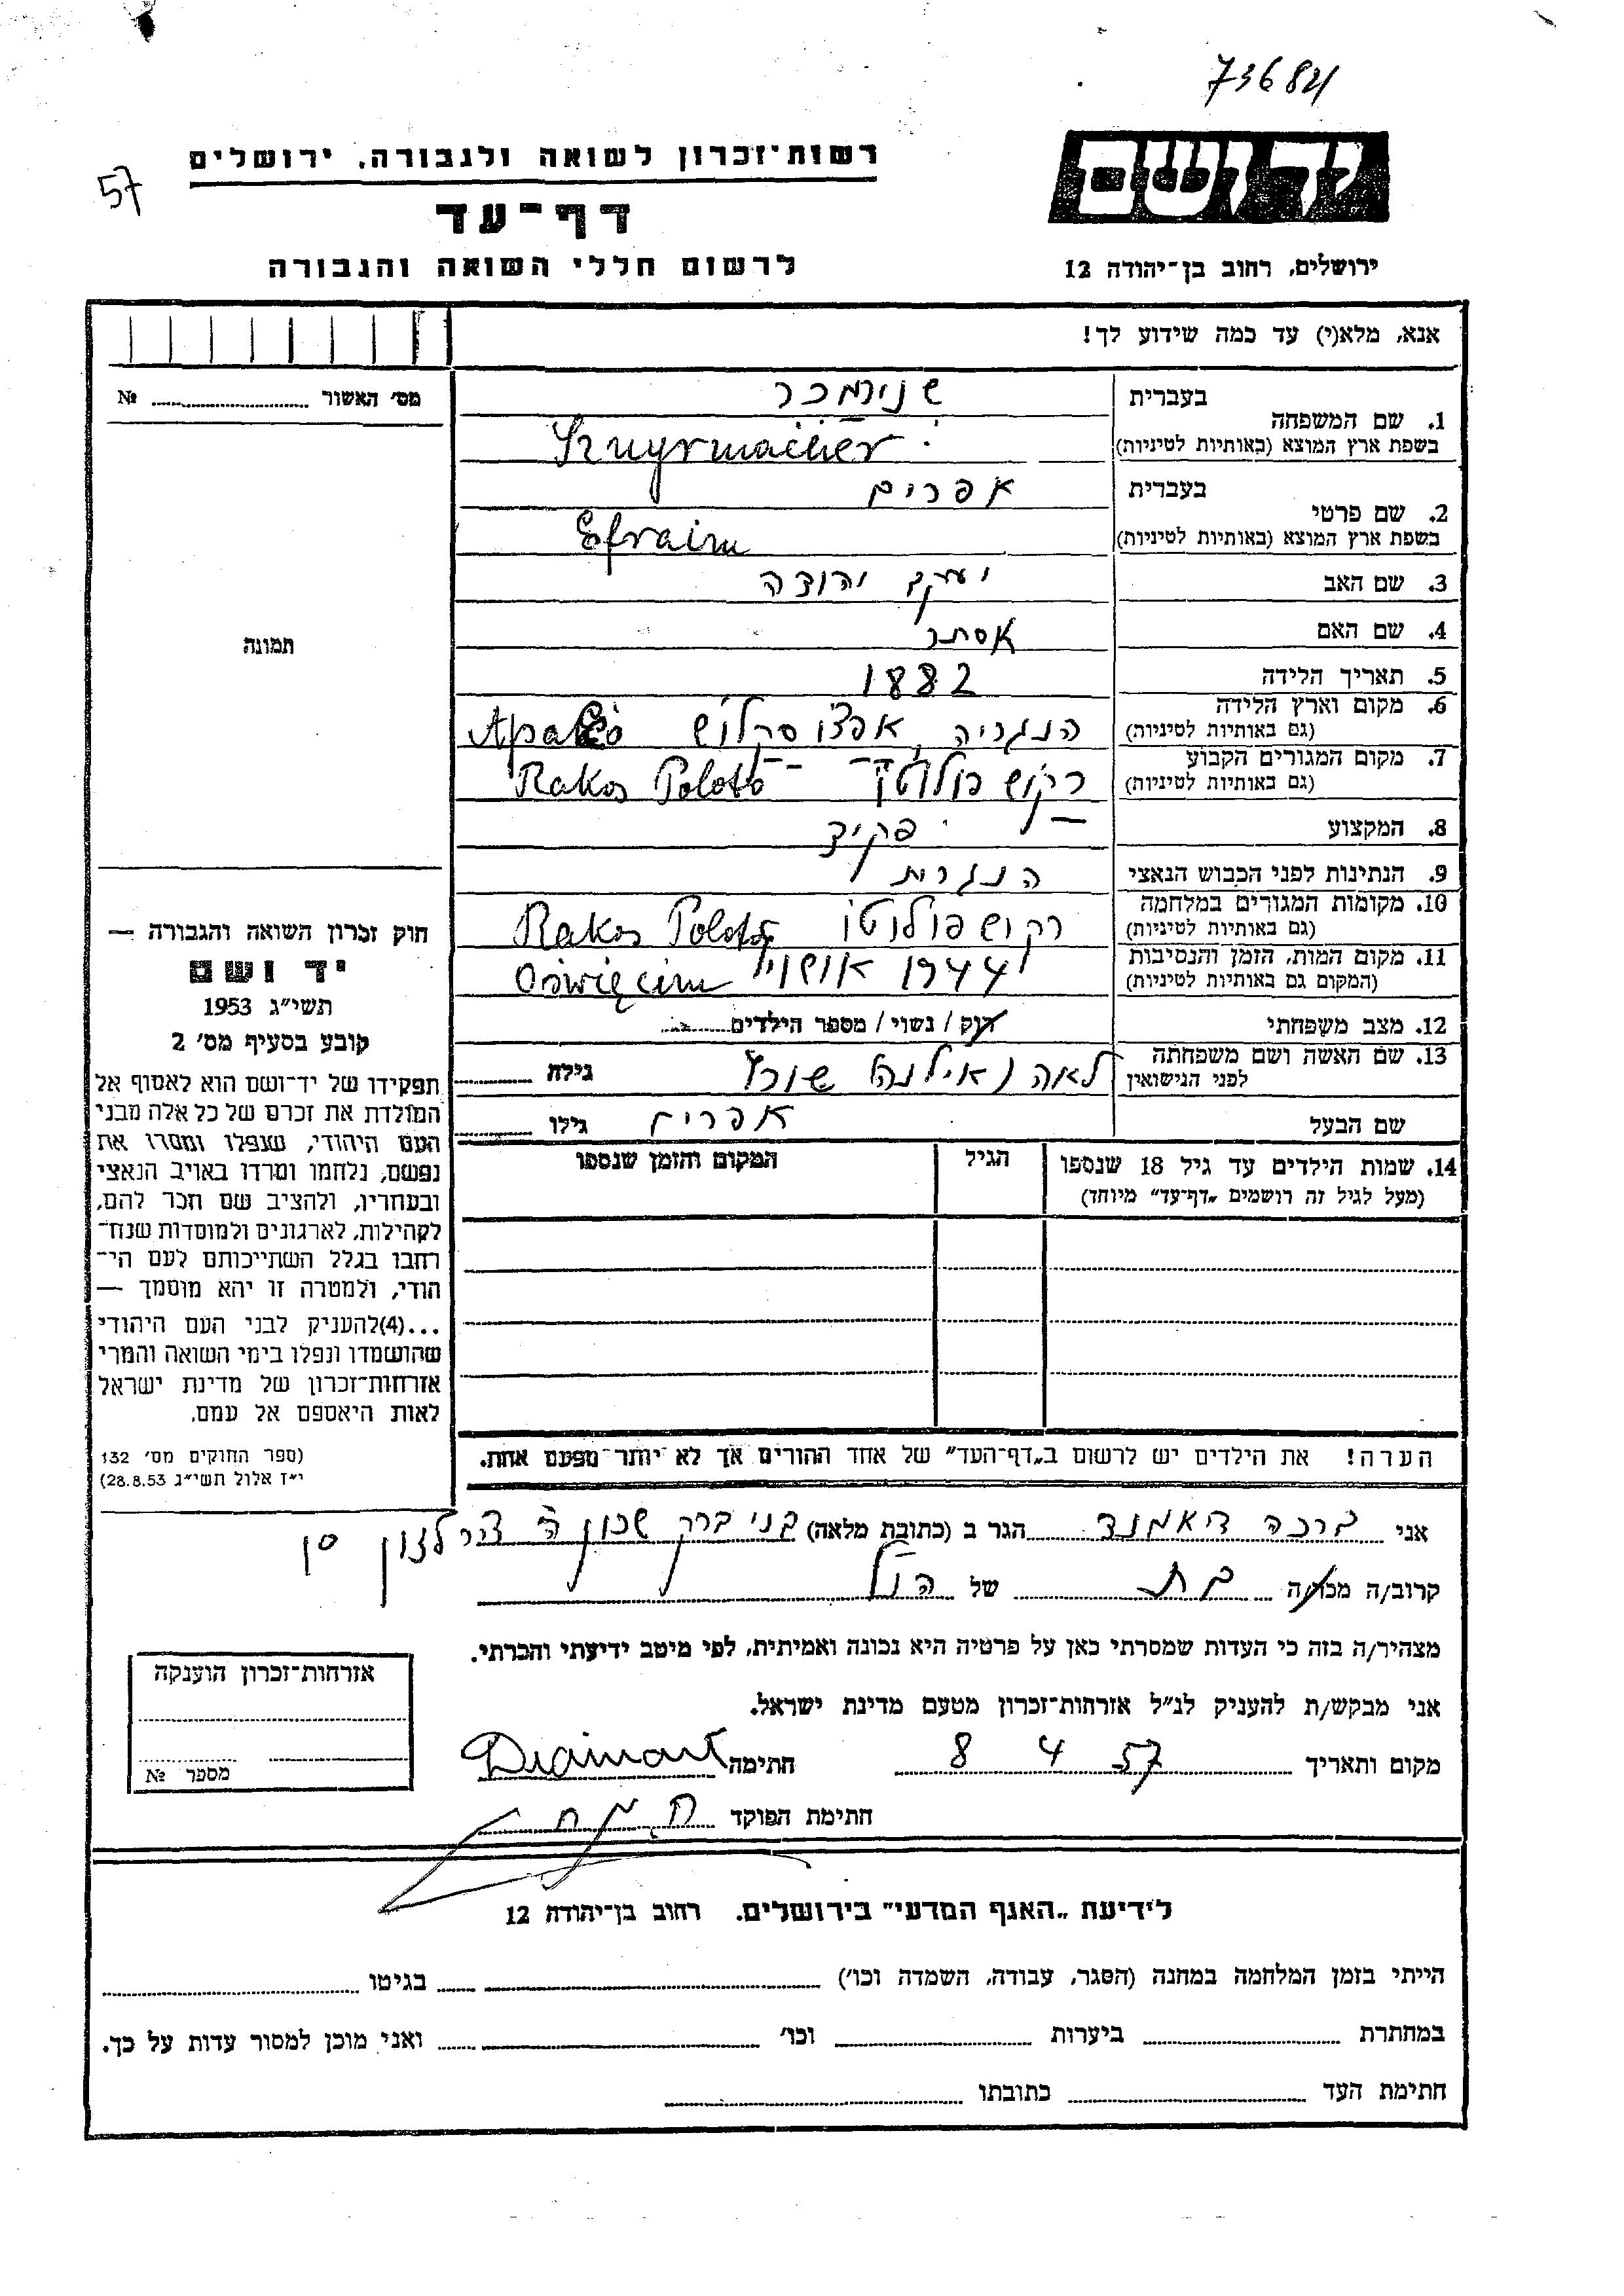 73684
57
רשות־זכרון לשואה ולגבורה, ירושלים
דף־עד
לרשום חללי השואה והגבורה
יד ושם
ירושלים, רחוב בן־יהודה 12
אנא, מלא(י) עד כמה שידוע לך!
מס׳ האשור № 
תמונה
1. שם המשפחה
בעברית שנירמכר
בשפת ארץ המוצא (באותיות לטיניות) Sznyrmacher
2. שם פרטי
בעברית אפרים
בשפת ארץ המוצא (באותיות לטיניות) Efraim
3. שם האב יעקב יהודה
4. שם האם אסתר
5. תאריך הלידה 1882
6. מקום וארץ הלידה
(גם באותיות לטיניות) הונגריה, 
7. מקום המגורים הקבוע
(גם באותיות לטיניות) Rakos Poloto
8. המקצוע פקיד
9. הנתינות לפני הכבוש הנאצי הונגרית
10. מקומות המגורים במלחמה
(גם באותיות לטיניות) רקוש פולוטו Rakos Poloto
11. מקום המות, הזמן והנסיבות
(המקום גם באותיות לטיניות) 1944 Oświęcim
12. מצב משפחתי רוק / נשוי / מספר הילדים
13. שם האשה ושם משפחתה
לפני הנישואין לאה שורץ גילה
שם הבעל אפרים גילו
14. שמות הילדים עד גיל 18 שנספו
(מעל לגיל זה רושמים „דף־עד” מיוחד)
הגיל
המקום והזמן שנספו
הערה! את הילדים יש לרשום ב„דף־העד” של אחד ההורים אך לא יותר מפעם אחת.
חוק זכרון השואה והגבורה —
יד ושם
תשי״ג 1953
קובע בסעיף מס׳ 2
תפקידו של יד־ושם הוא לאסוף אל
המולדת את זכרם של כל אלה מבני
העם היהודי, שנפלו ומסרו את
נפשם, נלחמו ומרדו באויב הנאצי
ובעוזריו, ולהציב שם וזכר להם,
לקהילות, לארגונים ולמוסדות שנח־
רבו בגלל השתייכותם לעם הי־
הודי, ולמטרה זו יהא מוסמך —
...(4)להעניק לבני העם היהודי
שהושמדו ונפלו בימי השואה והמרי
אזרחות־זכרון של מדינת ישראל
לאות היאספם אל עמם.
(ספר החוקים מס׳ 132
י״ז אלול תשי״ג 28.8.53)
אני ברכה דיאמנד הגר ב (כתובת מלאה) בני ברק שכון ה׳
קרוב/ה מכר/ה בת של הנ״ל
מצהיר/ה בזה כי העדות שמסרתי כאן על פרטיה היא נכונה ואמיתית, לפי מיטב ידיעתי והכרתי.
אני מבקש/ת להעניק לנ״ל אזרחות־זכרון מטעם מדינת ישראל.
מקום ותאריך 8 4 57 חתימה Diamant
חתימת הפוקד
אזרחות־זכרון הוענקה
מספר №
לידיעת „האגף המדעי” בירושלים. רחוב בן־יהודה 12
הייתי בזמן המלחמה במחנה (הסגר, עבודה, השמדה וכו׳) בגיטו
במחתרת ביערות וכו׳ ואני מוכן למסור עדות על כך.
חתימת העד כתובתו